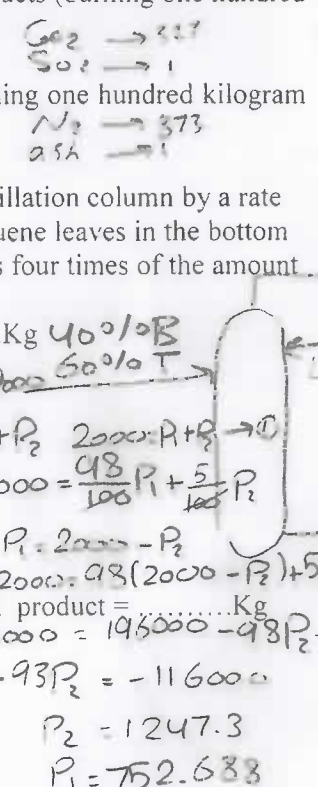 SO2 → 1
ing one hundred kilogram
N2 → 373
ash → 1
illation column by a rate
uene leaves in the bottom
s four times of the amount
Kg 40% B
60% T
+P2 2000 = P1 + P2 → ①
000 = 98/100 P1 + 5/100 P2
P1 = 2000 - P2
2000 = 98(2000 - P2) + 5
product = ..........Kg
000 = 196000 - 98P2
-93P2 = -116000
P2 = 1247.3
P1 = 752.688